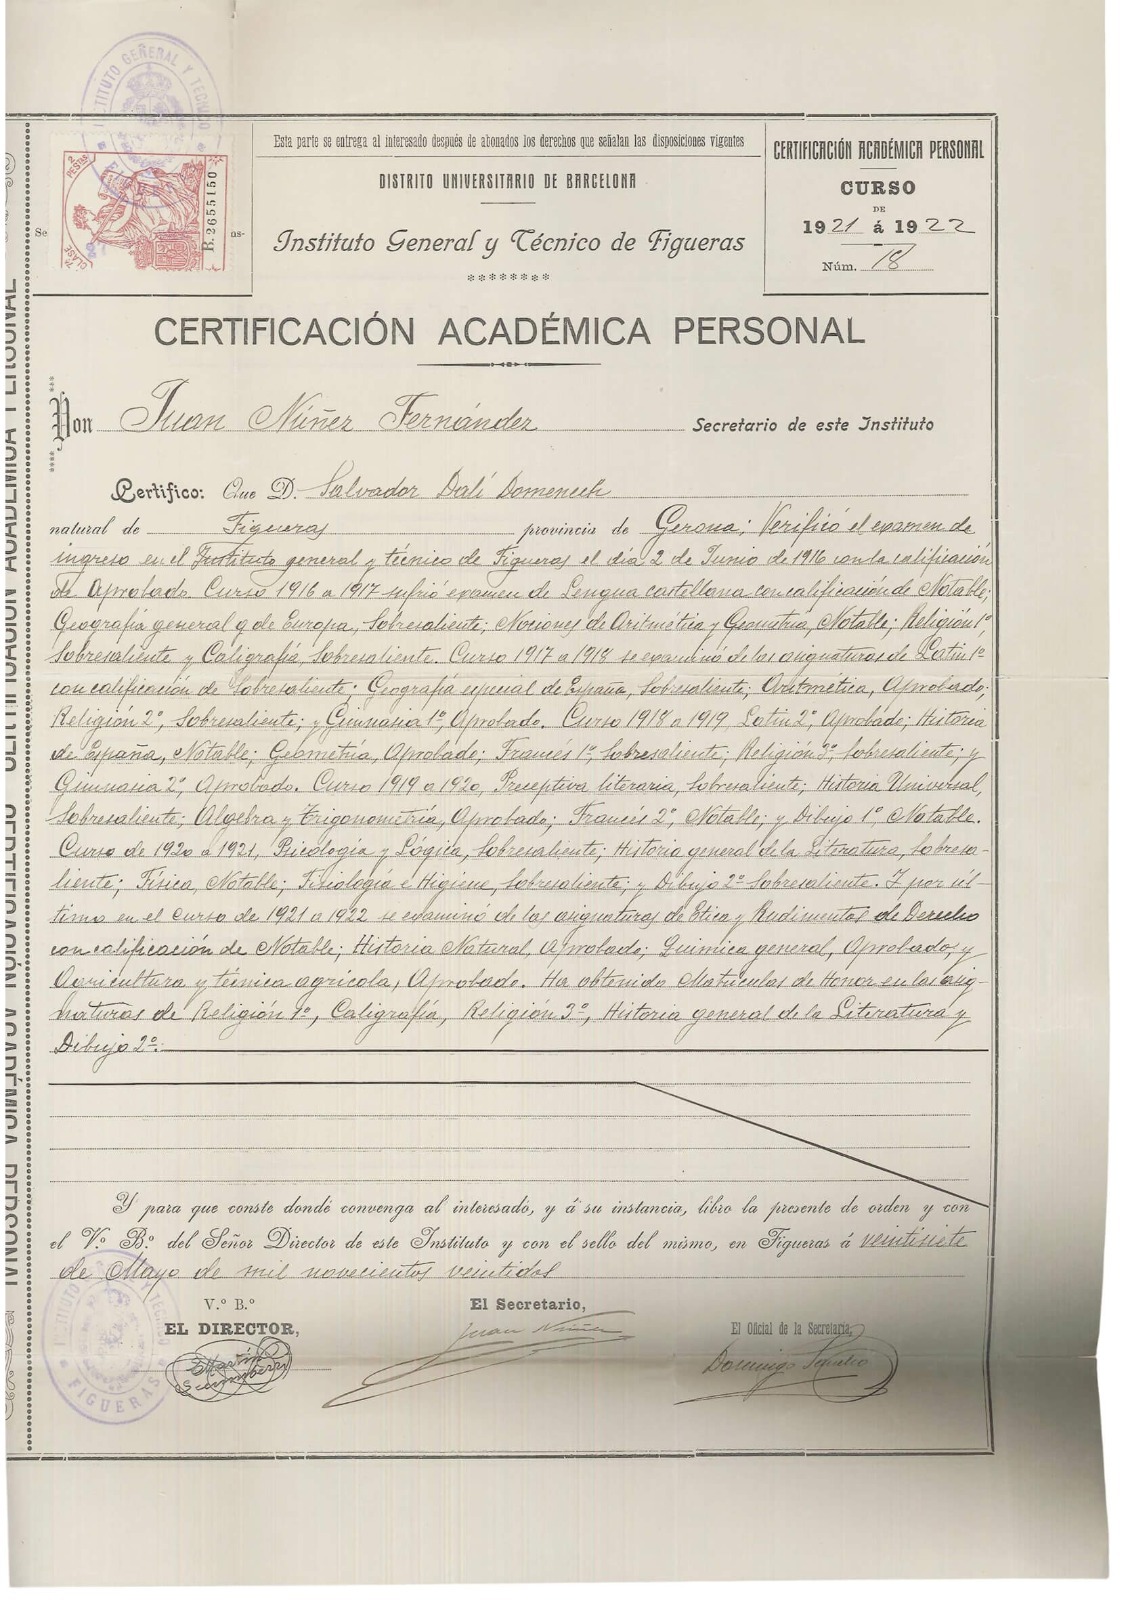 INSTITUTO GENERAL Y TECNICO
2 PESTAS
CLASE 7ª
B.2655150
Se
as-
Esta parte se entrega al interesado después de abonados los derechos que señalan las disposiciones vigentes
DISTRITO UNIVERSITARIO DE BARCELONA
Instituto General y Técnico de Figueras
CERTIFICACIÓN ACADÉMICA PERSONAL
CURSO
DE
1921 á 1922
Núm. 18
CERTIFICACIÓN ACADÉMICA PERSONAL
CERTIFICACIÓN ACADÉMICA PERSONAL
Don Juan Núñez Fernández Secretario de este Instituto
Certifico: Que D. Salvador Dalí Domenech
natural de Figueras provincia de Gerona; Verificó el examen de
ingreso en el Instituto general y técnico de Figueras el día 2 de Junio de 1916 con la calificación
de Aprobado. Curso 1916 a 1917 sufrió examen de Lengua castellana con calificación de Notable;
Geografía general y de Europa, Sobresaliente; Nociones de Aritmética y Geometría, Notable; Religión 1º,
Sobresaliente y Caligrafía, Sobresaliente. Curso 1917 a 1918 se examinó de las asignaturas de Latin 1º
con calificación de Sobresaliente; Geografía especial de España, Sobresaliente; Aritmética, Aprobado;
Religión 2º, Sobresaliente; y Gimnasia 1º, Aprobado. Curso 1918 a 1919, Latin 2º, Aprobado; Historia
de España, Notable; Geometria, Aprobado; Francés 1º, Sobresaliente; Religión 3º, Sobresaliente; y
Gimnasia 2º, Aprobado. Curso 1919 a 1920, Preceptiva literaria, Sobresaliente; Historia Universal,
Sobresaliente; Algebra y Trigonometría, Aprobado; Francés 2º, Notable; y Dibujo 1º, Notable.
Curso de 1920 a 1921, Psicología y Lógica, Sobresaliente; Historia general de la Literatura, Sobresa-
liente; Física, Notable; Fisiología e Higiene, Sobresaliente; y Dibujo 2º Sobresaliente. Y por úl-
timo en el curso de 1921 a 1922 se examinó de las asignaturas de Etica y Rudimentos de Derecho
con calificación de Notable; Historia Natural, Aprobado; Química general, Aprobado, y
Agricultura y técnica agrícola, Aprobado. Ha obtenido Matrículas de Honor en las asig-
naturas de Religión 1º, Caligrafía, Religión 3º, Historia general de la Literatura y
Dibujo 2º.
Y para que conste donde convenga al interesado, y á su instancia, libro la presente de orden y con
el V.º B.º del Señor Director de este Instituto y con el sello del mismo, en Figueras á veintisiete
de Mayo de mil novecientos veintidos
V.º B.º
EL DIRECTOR,
El Secretario,
Juan Núñez
El Oficial de la Secretaría,
Domingo
INSTITUTO GENERAL Y TECNICO
FIGUERAS